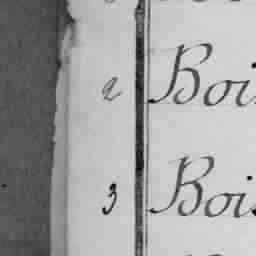 2 Bois
3 Bois